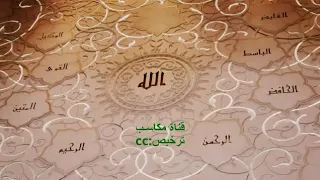 القابض
الوكيل
الباسط
القوى
الله
الخافض
المتين
قناة مكاسب
ترخيص:cc
الرحمن
الرحيم